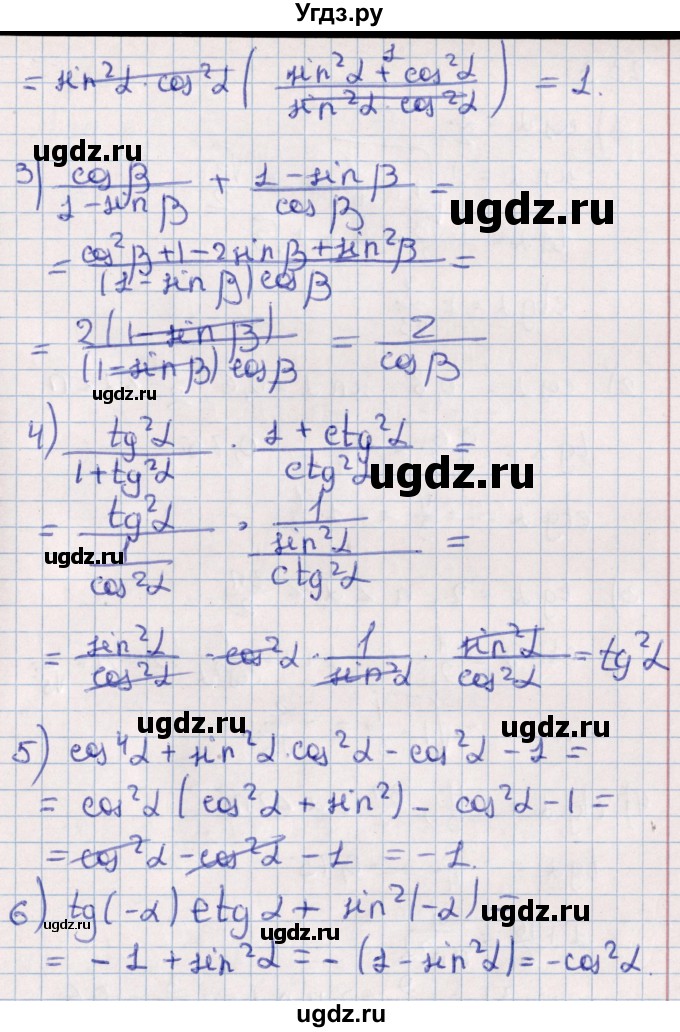 Угдз.ру
= sin²α · cos²α ( (sin²α + cos²α)¹ / (sin²α · cos²α) ) = 1.
ugdz.ru
3) cosβ / (1 - sinβ) + (1 - sinβ) / cosβ =
ugdz.ru
ugdz.ru
= (cos²β + 1 - 2sinβ + sin²β) / ((1 - sinβ) cosβ) =
= 2(1 - sinβ) / ((1 - sinβ) cosβ) = 2 / cosβ
ugdz.ru
4) tg²α / (1 + tg²α) · (1 + ctg²α) / ctg²α =
ugdz.ru
= tg²α / (1 / cos²α) · (1 / sin²α) / ctg²α =
ugdz.ru
= sin²α / cos²α · cos²α · 1 / sin²α · sin²α / cos²α = tg²α
ugdz.ru
ugdz.ru
5) cos⁴α + sin²α · cos²α - cos²α - 1 =
= cos²α ( cos²α + sin²) - cos²α - 1 =
= cos²α - cos²α - 1 = -1.
6) tg(-α) ctgα + sin²(-α) =
ugdz.ru
ugdz.ru
ugdz.ru
= -1 + sin²α = -(1 - sin²α) = -cos²α.
ugdz.ru